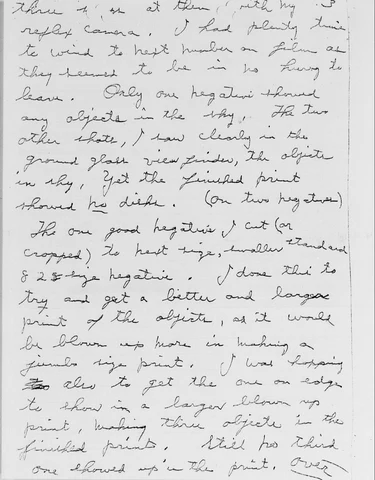 three s at them, with my
reflex camera. I had plenty time
to wind to next number on film as
they seemed to be in no hurry to
leave. Only one negative showed
any objects in the sky. The two
other shots, I saw clearly in the
ground glass view finder, the objects
in sky, Yet the finished print
showed no disks. (on two negatives)
The one good negative I cut (or
cropped) to next size, smaller standard
828 size negative. I done this to
try and get a better and larger
print of the objects, as it would
be blown up more in making a
jumbo size print. I was hopping
also to get the one on edge
to show in a larger blown up
print, making three objects in the
finished print. Still no third
one showed up in the print. over